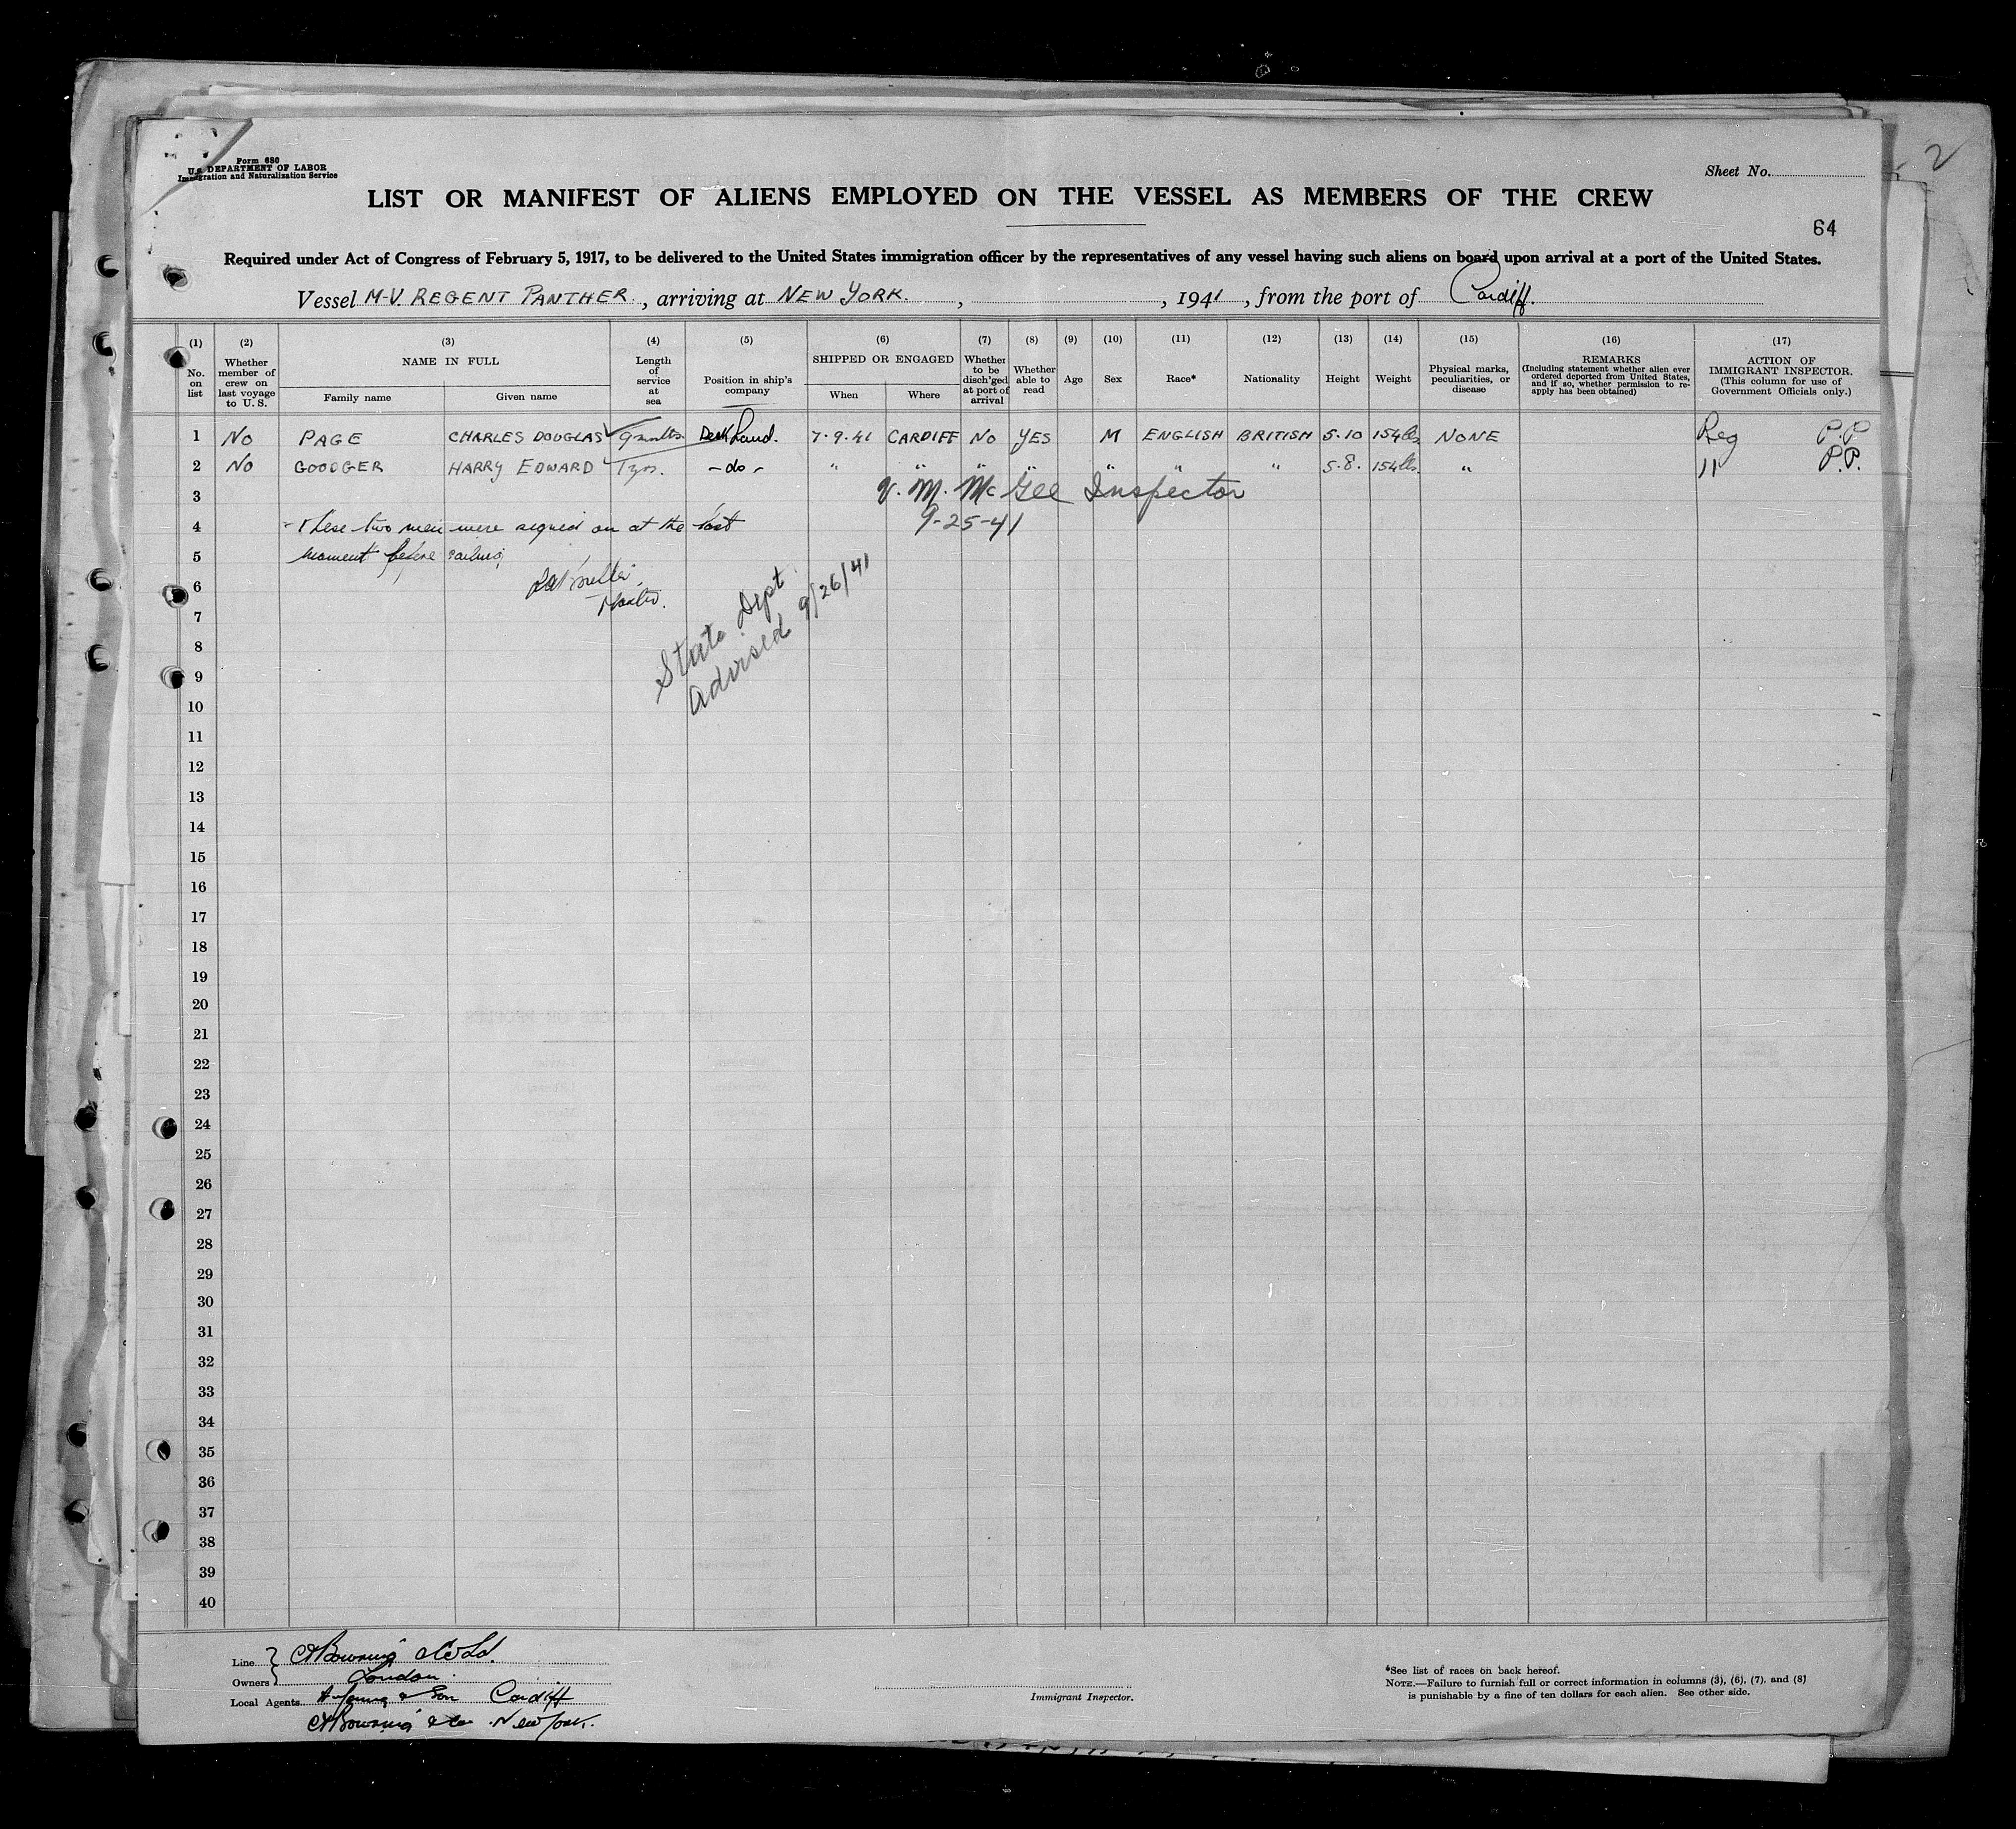 2
Form 680
U.S. DEPARTMENT OF LABOR
Immigration and Naturalization Service
Sheet No.
LIST OR MANIFEST OF ALIENS EMPLOYED ON THE VESSEL AS MEMBERS OF THE CREW
64
Required under Act of Congress of February 5, 1917, to be delivered to the United States immigration officer by the representatives of any vessel having such aliens on board upon arrival at a port of the United States.
Vessel M-V. REGENT PANTHER, arriving at NEW YORK., , 1941, from the port of Cardiff.
(1) No. on list
(2) Whether member of crew on last voyage to U. S.
(3) NAME IN FULL
Family name
Given name
(4) Length of service at sea
(5) Position in ship's company
(6) SHIPPED OR ENGAGED
When
Where
(7) Whether to be disch'ged at port of arrival
(8) Whether able to read
(9) Age
(10) Sex
(11) Race*
(12) Nationality
(13) Height
(14) Weight
(15) Physical marks, peculiarities, or disease
(16) REMARKS
(Including statement whether alien ever ordered deported from United States, and if so, whether permission to re-apply has been obtained)
(17) ACTION OF IMMIGRANT INSPECTOR.
(This column for use of Government Officials only.)
1 No PAGE CHARLES DOUGLAS 9 months Deck hand. 7.9.41 CARDIFF NO YES M ENGLISH BRITISH 5.10 154 lbs NONE Reg P.P
2 No GOODGER HARRY EDWARD yrs. -do- " " " " " " " 5.8. 154 lbs. " " P.P.
3 V. M. McGee Inspector
4 These two men were signed on at the last 9-25-41
5 moment before sailing
6
Master.
7
State Dept
Advised 9/26/41
8
9
10
11
12
13
14
15
16
17
18
19
20
21
22
23
24
25
26
27
28
29
30
31
32
33
34
35
36
37
38
39
40
Line Bowring & Co Ld.
Owners London.
Local Agents & Son Cardiff
Bowring & Co. New York.
Immigrant Inspector.
*See list of races on back hereof.
NOTE.—Failure to furnish full or correct information in columns (3), (6), (7), and (8)
is punishable by a fine of ten dollars for each alien. See other side.